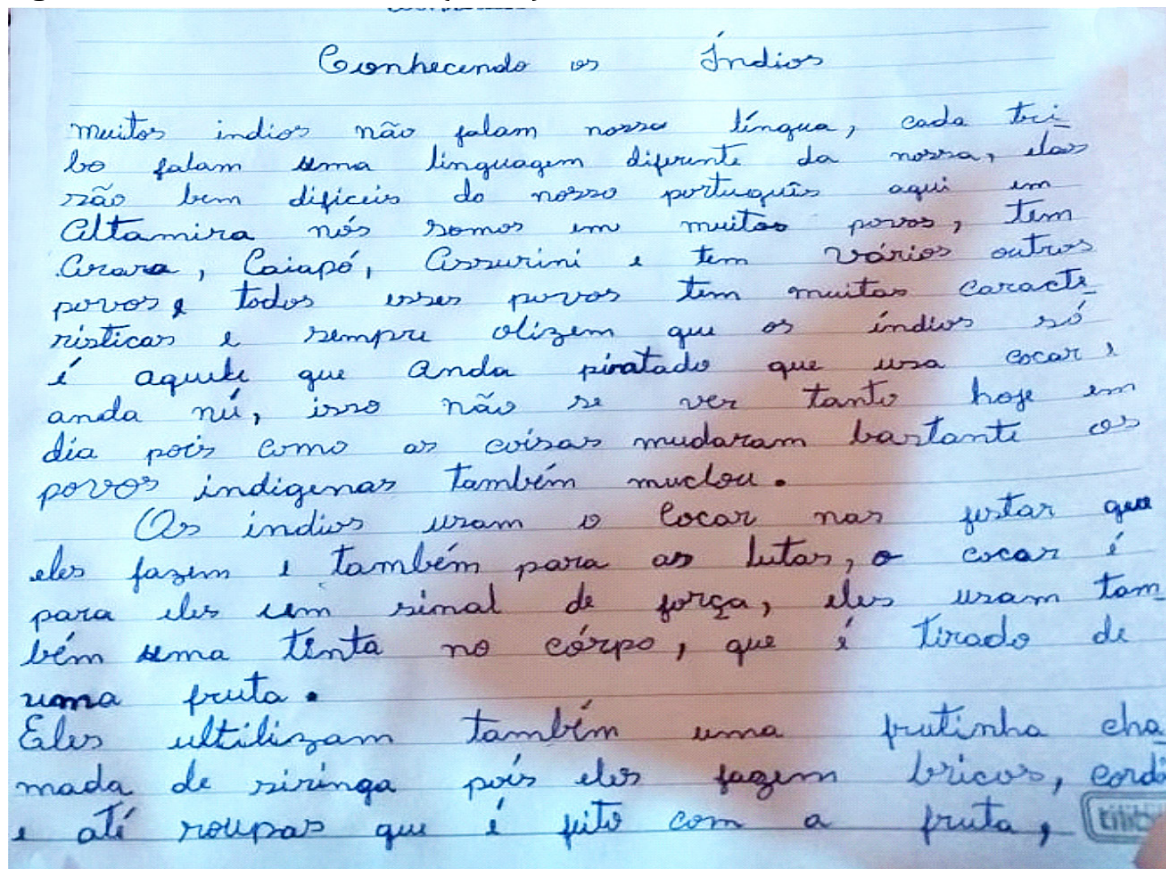 Conhecendo os Índios
muitos indios não falam nossa língua, cada tri
bo falam uma linguagem diferente da nossa, elas
são bem difíceis do nosso português aqui em
Altamira nós somos em muitos povos, tem
Arara, Caiapó, Assurini e tem vários outros
povos e todos esses povos tem muitas caracte
risticas e sempre dizem que os índios só
é aquele que anda pintado que usa cocar e
anda nú, isso não se ver tanto hoje em
dia pois como as coisas mudaram bastante os
povos indigenas também mudou.
Os índios usam o cocar nas festas que
eles fazem e também para as lutas, o cocar é
para eles um sinal de força, eles usam tam
bém uma tinta no córpo, que é tirado de
uma fruta.
Eles ultilizam também uma frutinha cha
mada de siringa pois eles fazem bricos,
e até roupas que é feito com a fruta,